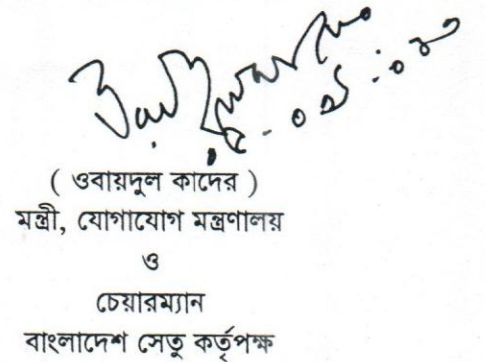 ( ওবায়দুল কাদের )
মন্ত্রী, যোগাযোগ মন্ত্রণালয়
ও
চেয়ারম্যান
বাংলাদেশ সেতু কর্তৃপক্ষ